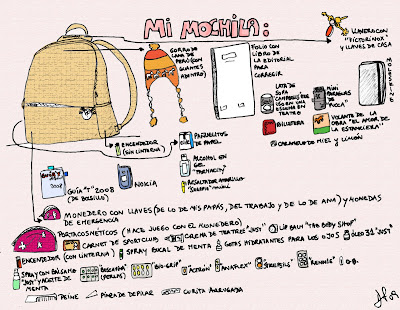 Mi MOCHILA:
LLAVERO CON
"VICTORINOX"
Y LLAVES DE CASA
GORRO DE
LANA DE
PERÚ (CON
GUANTES
ADENTRO)
FOLIO CON
LIBRO DE
LA EDITORIAL
PARA
CORREGIR
MOLESKINE
LATA DE
SOPA
CAMPBELL'S QUE
USO EN UNA
ESCENA EN
TEATRO
MINI
PARAGUAS
DE
"MOCCA"
BILLETERA
VOLANTE DE LA
OBRA "EL AMOR DE
LA ESTANCIERA"
CARAMELO DE MIEL Y LIMÓN
ENCENDEDOR
(SIN LINTERNA)
PAÑUELITOS
DE PAPEL
ALCOHOL EN
GEL
RESALTADOR AMARILLO
GUÍA "T" 2008
(DE BOLSILLO)
NOKIA
MONEDERO CON LLAVES (DE LO DE MIS PAPÁS, DEL TRABAJO Y DE LO DE ANA) Y MONEDAS
DE EMERGENCIA
PORTACOSMÉTICOS (HACE JUEGO CON EL MONEDERO)
CARNET DE SPORTCLUB
CREMA DE TEATREE "JUST"
LIP BALM "THE BODY SHOP"
ENCENDEDOR (CON LINTERNA)
SPRAY BUCAL DE MENTA
GOTAS HIDRATANTES PARA LOS OJOS
ÓLEO 31 "JUST"
SPRAY CON BÁLSAMO
"JUST" Y ACEITE DE
MENTA
(PERLAS)
"BIO-GRIP"
"ACTRON"
"ANAFLEX"
"STREPSILS"
"RENNIE"
PEINE
PINZA DE DEPILAR
CURITA ARRUGADA